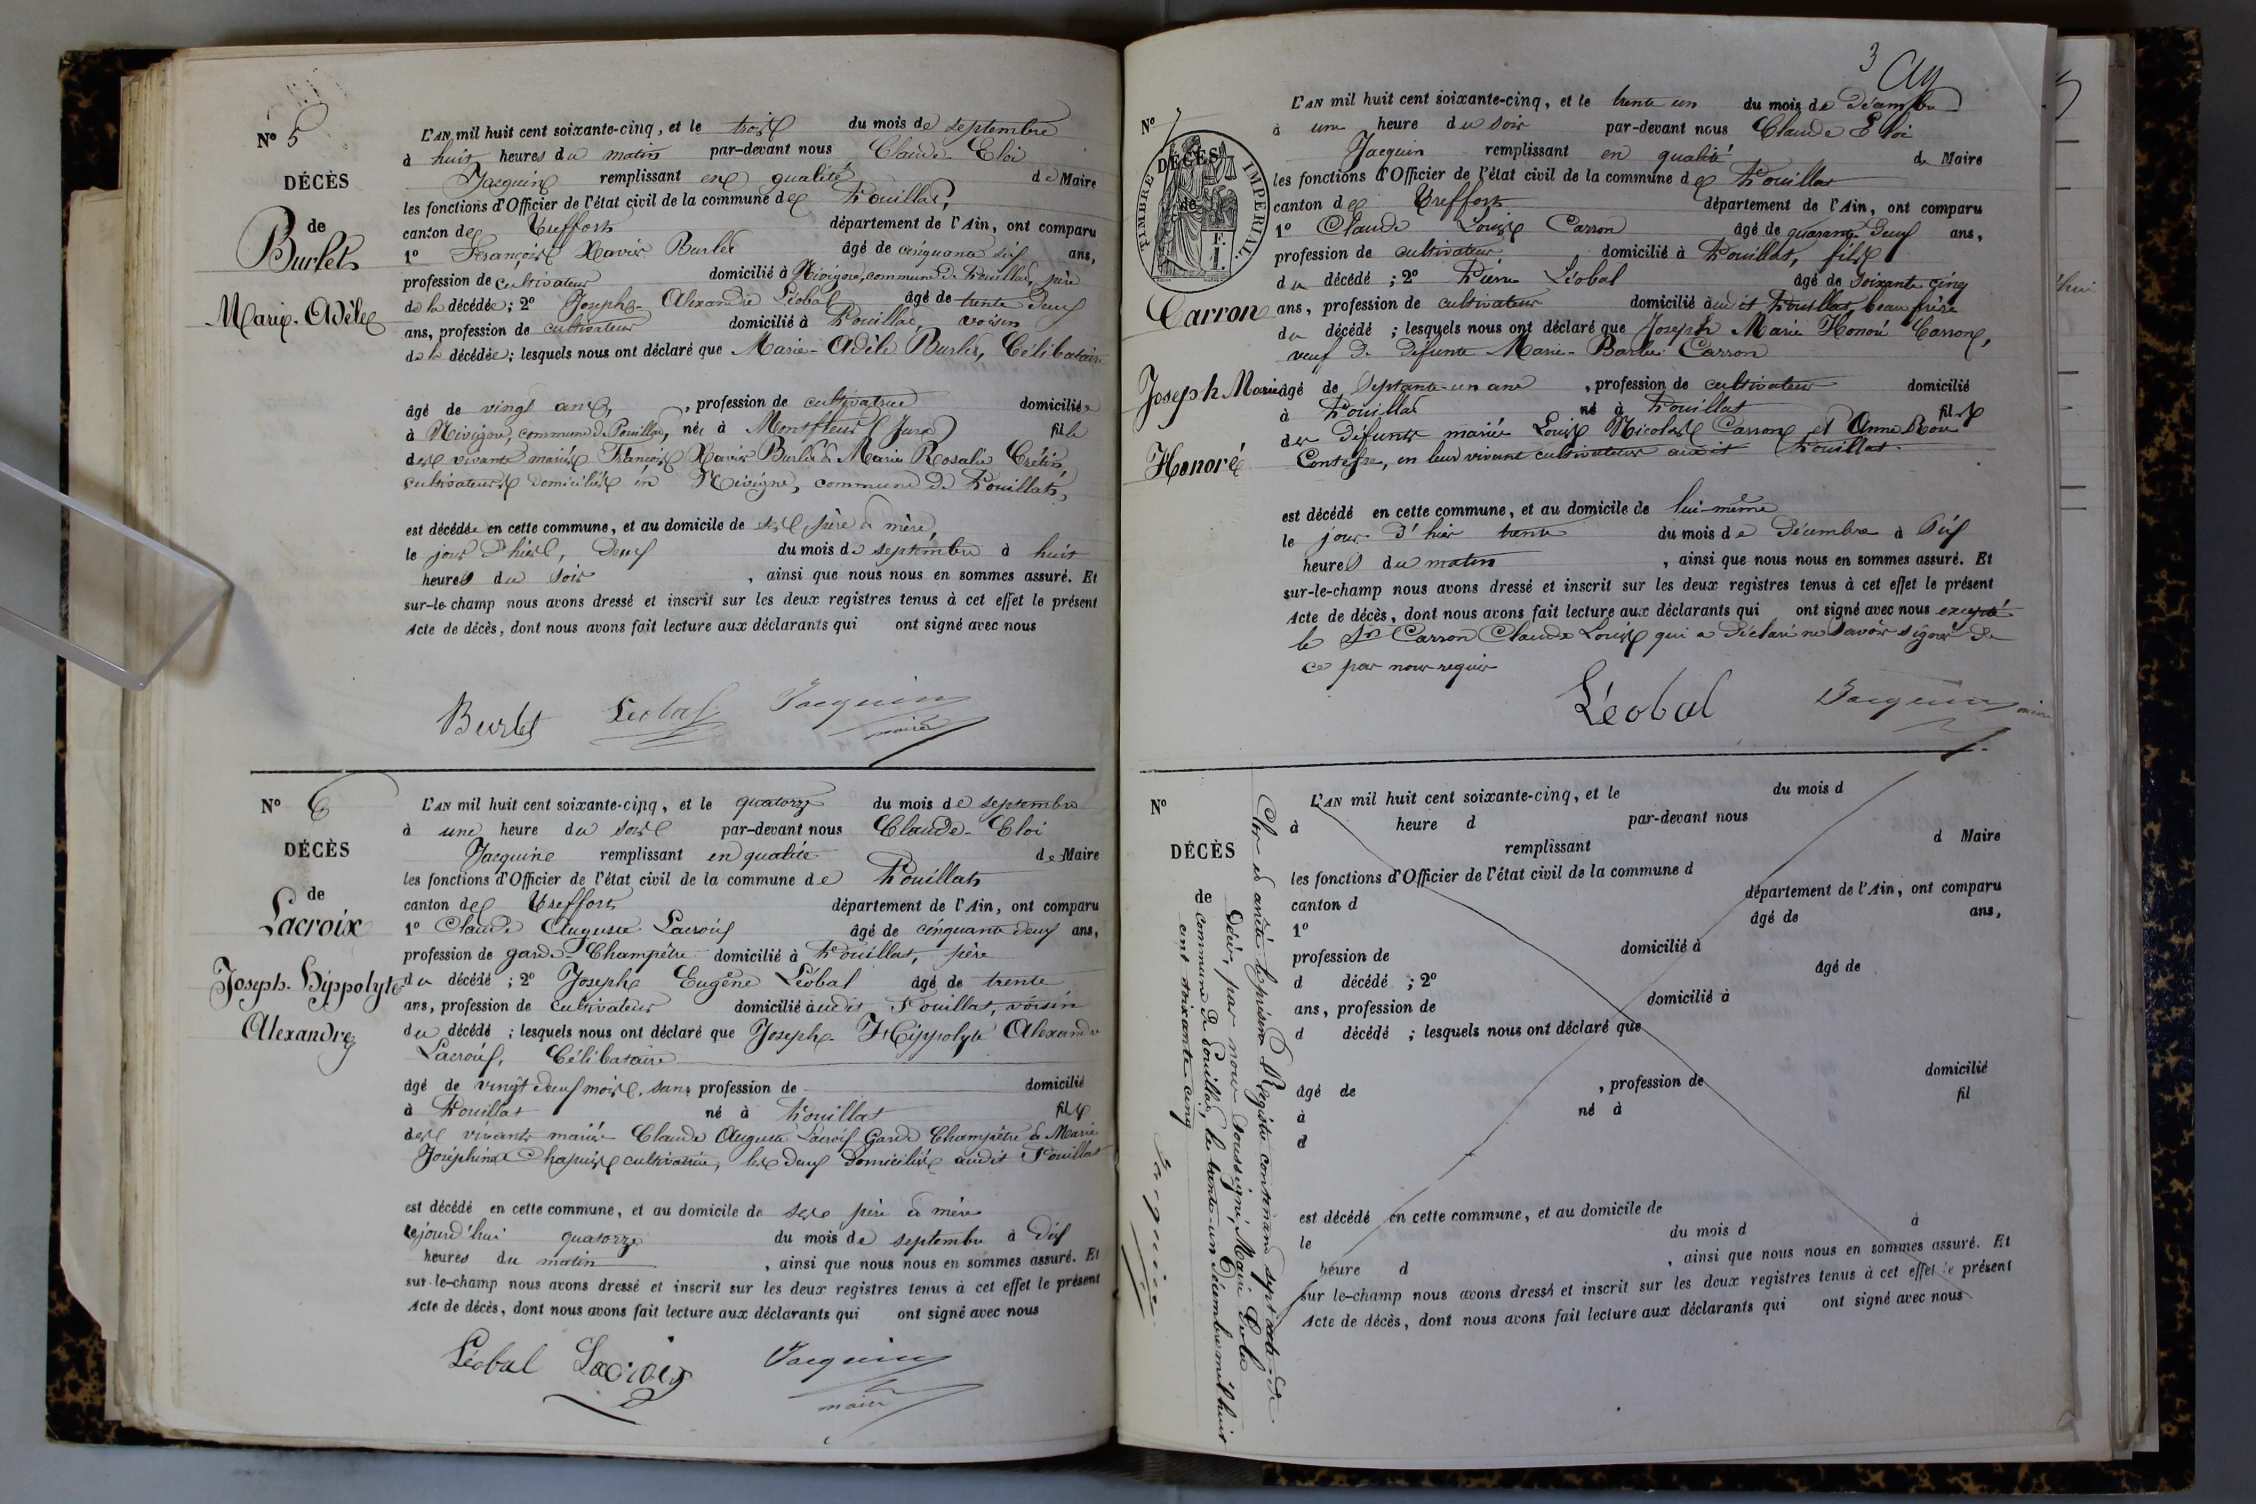 N° 5
DÉCÈS
de
Burlet
Marie-Adèle
L'AN mil huit cent soixante-cinq, et le trois du mois de septembre
à huit heures du matin par-devant nous Claude-Eloi
Jacquin remplissant en qualité de Maire
les fonctions d'Officier de l'état civil de la commune de Pouillat,
canton de Treffort département de l'Ain, ont comparu
1° François Xavier Burlet âgé de cinquante six ans,
profession de cultivateur domicilié à Nivigne, commune de Pouillat, père
de la décédée; 2° Joseph-Alexandre Léobal âgé de trente deux
ans, profession de cultivateur domicilié à Pouillat, voisin
de la décédée; lesquels nous ont déclaré que Marie-Adèle Burlet, Célibataire
âgé de vingt ans, , profession de cultivatrice domiciliée
à Nivigne, commune de Pouillat, née à Montfleur (Jura) fille
des vivants mariés François Xavier Burlet & Marie Rosalie Crétin,
cultivateurs domiciliés en Nivigne, commune de Pouillat,
est décédée en cette commune, et au domicile de ses père & mère,
le jour d'hier, deux du mois de septembre à huit
heures du soir , ainsi que nous nous en sommes assuré. Et
sur-le-champ nous avons dressé et inscrit sur les deux registres tenus à cet effet le présent
Acte de décès, dont nous avons fait lecture aux déclarants qui ont signé avec nous
Burlet Léobal Jacquin
maire
N° 6
DÉCÈS
de
Lacroix
Joseph-Hippolyte
Alexandre
L'AN mil huit cent soixante-cinq, et le quatorze du mois de septembre
à une heure du soir par-devant nous Claude-Eloi
Jacquin remplissant en qualité de Maire
les fonctions d'Officier de l'état civil de la commune de Pouillat
canton de Treffort département de l'Ain, ont comparu
1° Claude Auguste Lacroix âgé de cinquante deux ans,
profession de garde Champêtre domicilié à Pouillat, père
du décédé ; 2° Joseph Eugène Léobal âgé de trente
ans, profession de cultivateur domicilié audit Pouillat, voisin
du décédé ; lesquels nous ont déclaré que Joseph-Hippolyte Alexandre
Lacroix, Célibataire
âgé de vingt deux mois, sans profession de domicilié
à Pouillat né à Pouillat fils
des vivants mariés Claude Auguste Lacroix Garde Champêtre & Marie
Joséphine Chapuis cultivatrice, les deux domiciliés audit Pouillat
est décédé en cette commune, et au domicile de ses père & mère
cejourd'hui quatorze du mois de septembre à dix
heures du matin , ainsi que nous nous en sommes assuré. Et
sur-le-champ nous avons dressé et inscrit sur les deux registres tenus à cet effet le présent
Acte de décès, dont nous avons fait lecture aux déclarants qui ont signé avec nous
Léobal Lacroix Jacquin
maire
3
N° 7
DÉCÈS
de
TIMBRE IMPÉRIAL
1 F.
Carron
Joseph Marie
Honoré
L'AN mil huit cent soixante-cinq, et le trente un du mois de décembre
à une heure du soir par-devant nous Claude Eloi
Jacquin remplissant en qualité de Maire
les fonctions d'Officier de l'état civil de la commune de Pouillat
canton de Treffort département de l'Ain, ont comparu
1° Claude Louis Carron âgé de quarante deux ans,
profession de cultivateur domicilié à Pouillat, fils
du décédé ; 2° Pierre Léobal âgé de soixante cinq
ans, profession de cultivateur domicilié audit Pouillat, beau frère
du décédé ; lesquels nous ont déclaré que Joseph Marie Honoré Carron,
veuf de défunte Marie-Barbe Carron
âgé de septante-un ans , profession de cultivateur domicilié
à Pouillat né à Pouillat fils
des défunts mariés Louis Nicolas Carron et Anne
en leur vivant cultivateurs audit Pouillat.
est décédé en cette commune, et au domicile de lui-même
le jour d'hier trente du mois de décembre à dix
heures du matin , ainsi que nous nous en sommes assuré. Et
sur-le-champ nous avons dressé et inscrit sur les deux registres tenus à cet effet le présent
Acte de décès, dont nous avons fait lecture aux déclarants qui ont signé avec nous excepté
le Sr Carron Claude Louis qui a déclaré ne savoir signer de
ce par nous requis
Léobal Jacquin maire
N°
DÉCÈS
de
L'AN mil huit cent soixante-cinq, et le du mois d
à heure d par-devant nous
remplissant d Maire
les fonctions d'Officier de l'état civil de la commune d
canton d département de l'Ain, ont comparu
1° âgé de ans,
profession de domicilié à
d décédé ; 2° âgé de
ans, profession de domicilié à
d décédé ; lesquels nous ont déclaré que
âgé de , profession de domicilié
à né à fil
d
est décédé en cette commune, et au domicile de
le du mois d à
heure d , ainsi que nous nous en sommes assuré. Et
sur le-champ nous avons dressé et inscrit sur les deux registres tenus à cet effet le présent
Acte de décès, dont nous avons fait lecture aux déclarants qui ont signé avec nous
Clos et arrêté le présent Registre contenant sept actes de
Décès, par nous soussigné, Maire de la
commune de Pouillat, le trente-un décembre mil huit
cent soixante cinq
Jacquin